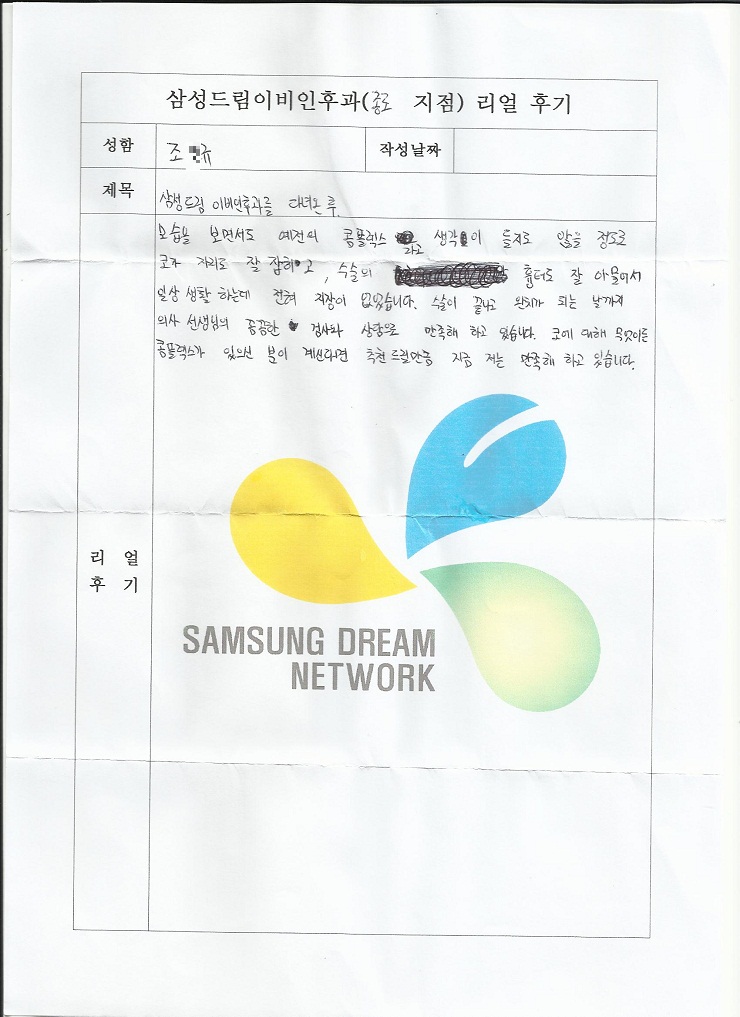 삼성드림이비인후과(종로 지점) 리얼 후기
성함 조 규 작성날짜
제목 삼성드림 이비인후과를 다녀온 후.
모습을 보면서도 예전의 콤플렉스 라고 생각이 들지도 않을 정도로
코가 자리도 잘 잡히고, 수술의 흉터도 잘 아물어서
일상 생활 하는데 전혀 지장이 없었습니다. 수술이 끝나고 완치가 되는 날까지
의사 선생님의 꼼꼼한 검사와 상담으로 만족해 하고 있습니다. 코에 대해 무엇이든
콤플렉스가 있으신 분이 계신다면 추천 드릴만큼 지금 저는 만족해 하고 있습니다.
리 얼
후 기
SAMSUNG DREAM
NETWORK